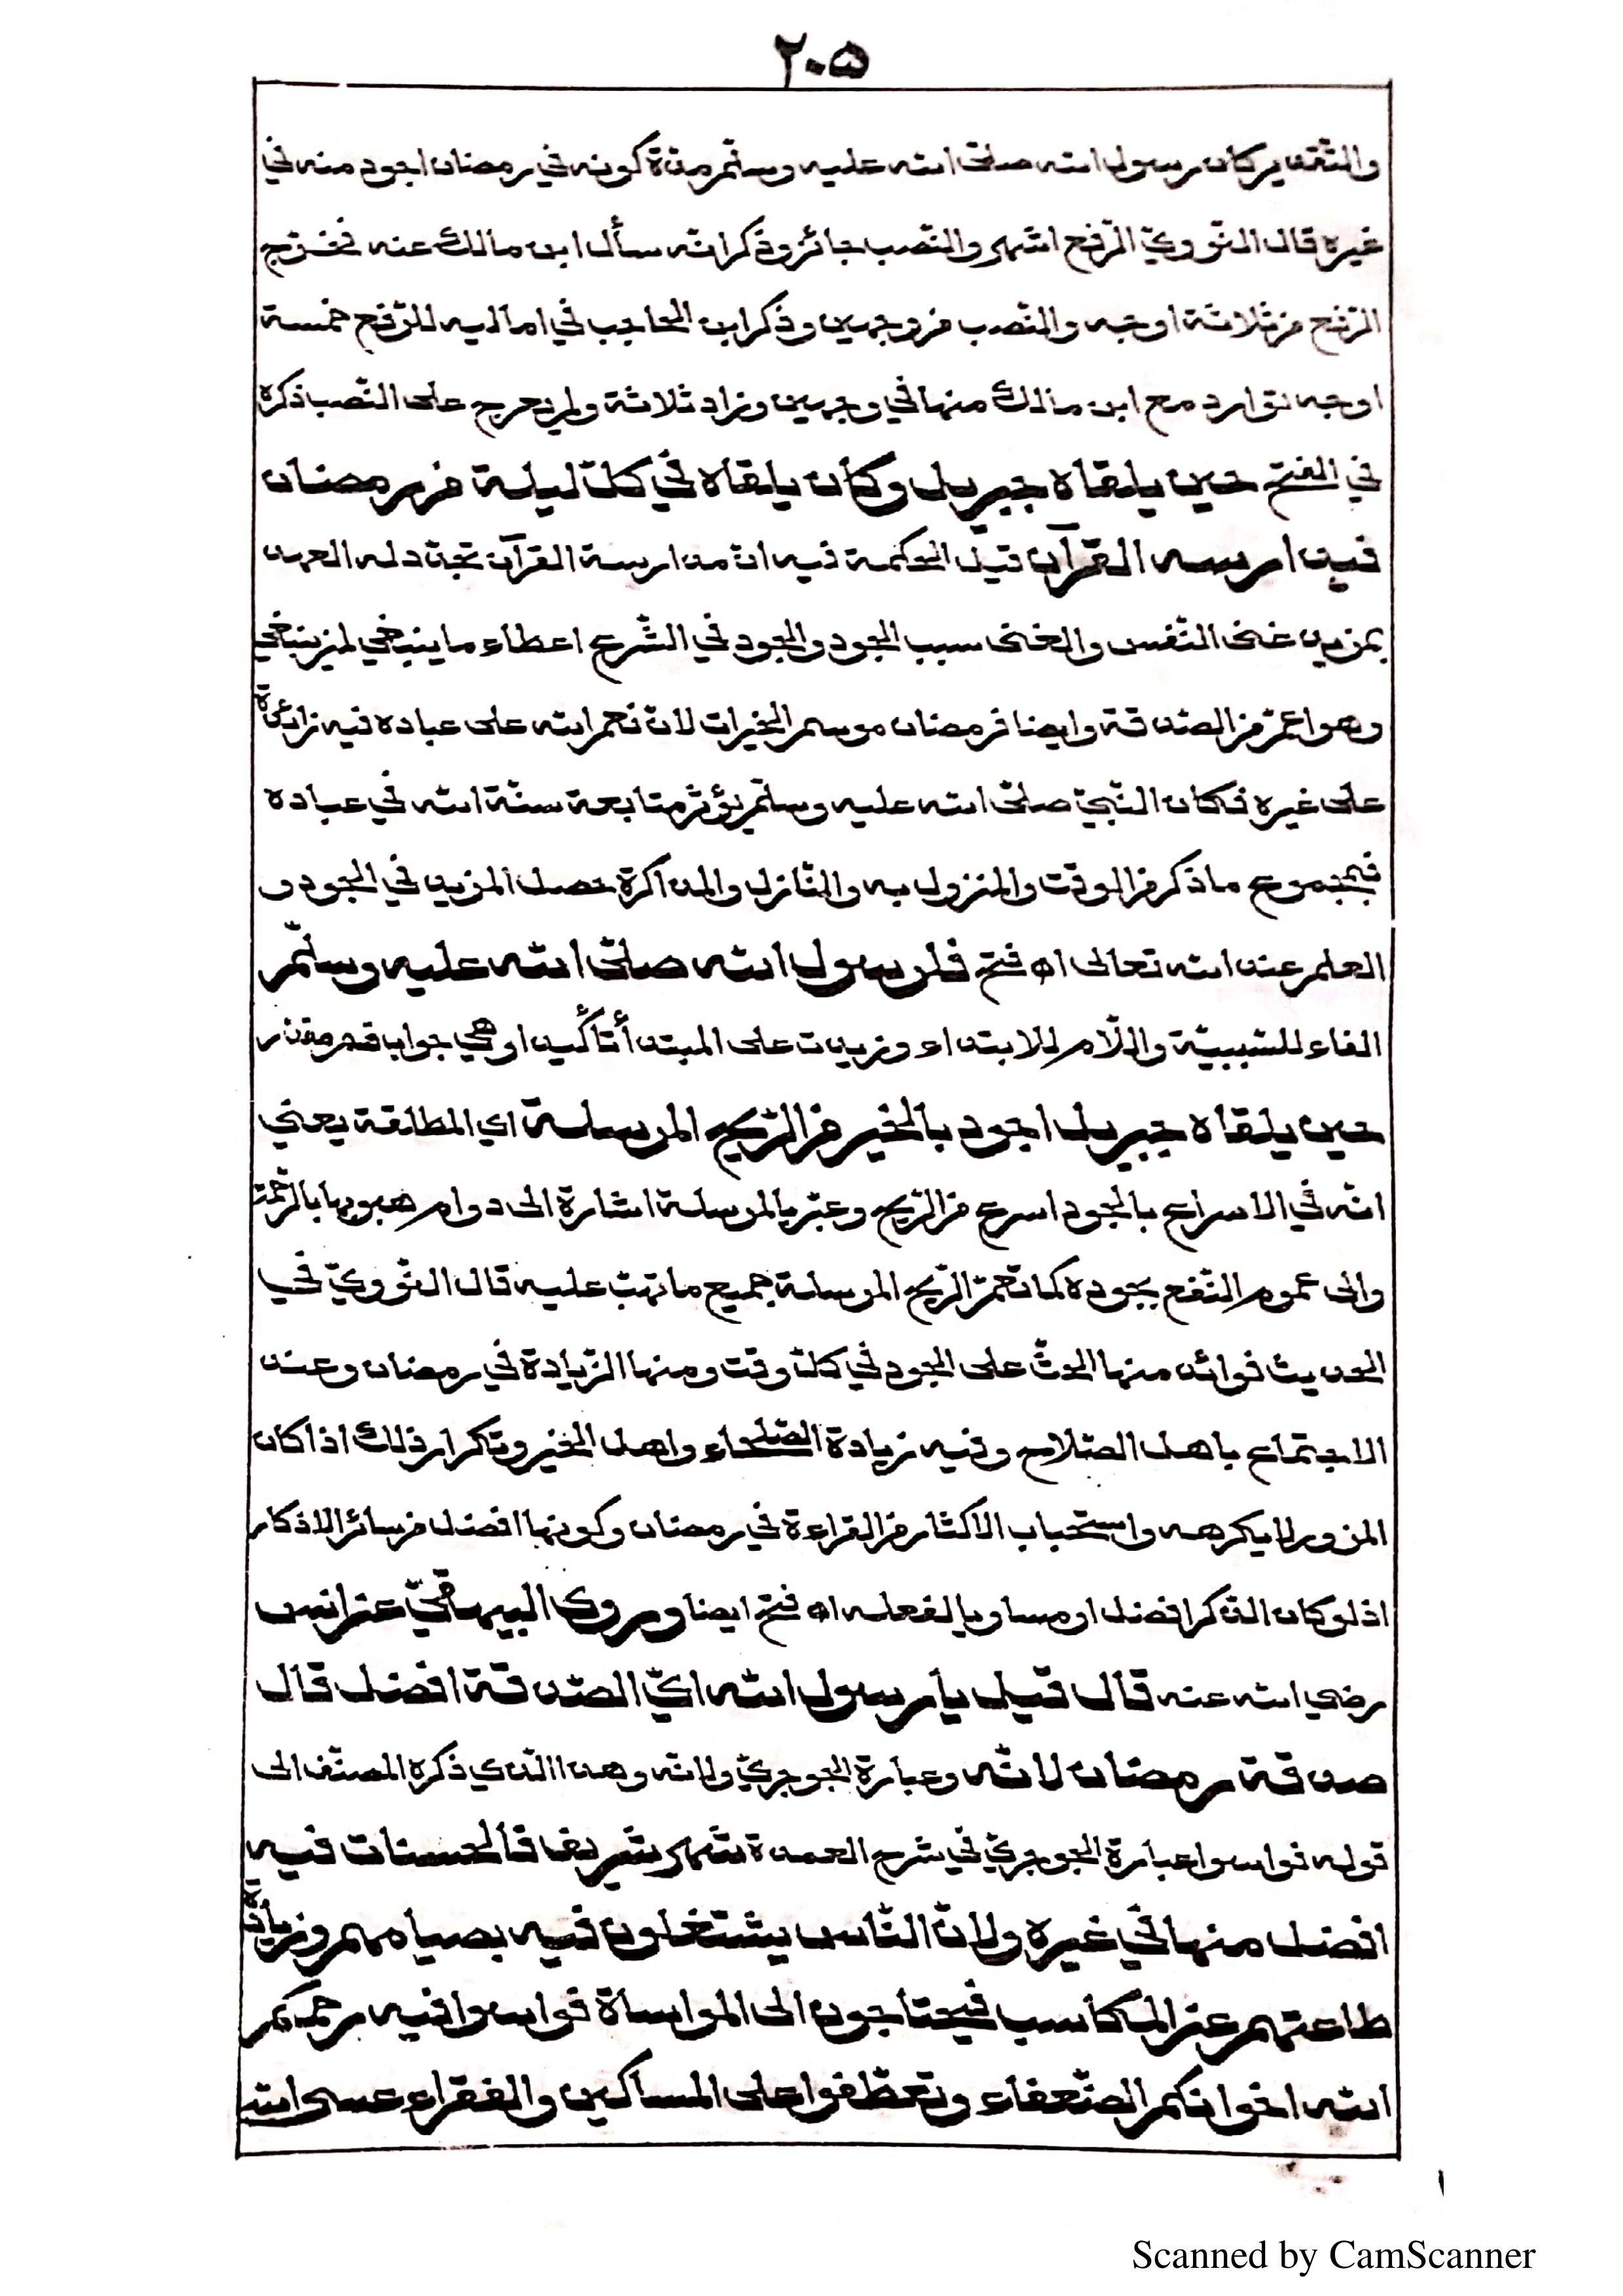 ٢٠٥
والتقدير كان رسول الله صلى الله عليه وسلم مدة كونه في رمضان اجود منه في
غيره قال النووي الرفع اشهر والنصب جائز وذكر انه سأل ابن مالك عنه فخرج
الرفع من ثلاثة اوجه والنصب من وجهين وذكر ابن الحاجب في اماليه للرفع خمسة
اوجه توارد مع ابن مالك منها في وجهين وزاد ثلاثة ولم يعرج على النصب ذكره
في الفتح حين يلقاه جبريل وكان يلقاه في كل ليلة من رمضان
فيدارسه القرآن قيل الحكمة فيه ان مدارسة القرآن تجدد له العهد
بمزيد غنى النفس والغنى سبب الجود والجود في الشرع اعطاء ما ينبغي لمن ينبغي
وهو اعم من الصدقة وايضا فرمضان موسم الخيرات لان نعم الله على عباده فيه زائدة
على غيره فكان النبي صلى الله عليه وسلم يؤثر متابعة سنة الله في عباده
فبمجموع ما ذكر من الوقت والمنزول به والنازل والمذاكرة حصل المزيد في الجود و
العلم عند الله تعالى اه فتح فلرسول الله صلى الله عليه وسلم
الفاء للسببية واللام للابتداء وزيدت على المبتدأ تأكيدا وهي جواب قسم مقدر
حين يلقاه جبريل اجود بالخير من الريح المرسلة اي المطلقة يعني
انه في الاسراع بالجود اسرع من الريح وعبر بالمرسلة اشارة الى دوام هبوبها بالرحمة
والى عموم النفع بجوده كما تعم الريح المرسلة جميع ما تهب عليه قال النووي في
الحديث فوائد منها الحث على الجود في كل وقت ومنها الزيادة في رمضان وعند
الاجتماع باهل الصلاح وفيه زيادة الصلحاء واهل الخير وتكرار ذلك اذا كان
المزور لا يكرهه واستحباب الاكثار من القراءة في رمضان وكونها افضل من سائر الاذكار
اذ لو كان الذكر افضل او مساويا لفعله اه فتح ايضا وروى البيهقي عن انس
رضي الله عنه قال قيل يا رسول الله اي الصدقة افضل قال
صدقة رمضان لانه وعبارة الجوجري ولانه وهذا الذي ذكره المصنف الى
قوله فواسوا عبارة الجوجري في شرح العمدة شهر شريف فالحسنات فيه
افضل منها في غيره ولان الناس يشتغلون فيه بصيامهم وزيادة
طاعتهم عن المكاسب فيحتاجون الى المواساة فواسوا فيه رحمكم
الله اخوانكم الضعفاء وتعطفوا على المساكين والفقراء عسى الله
Scanned by CamScanner